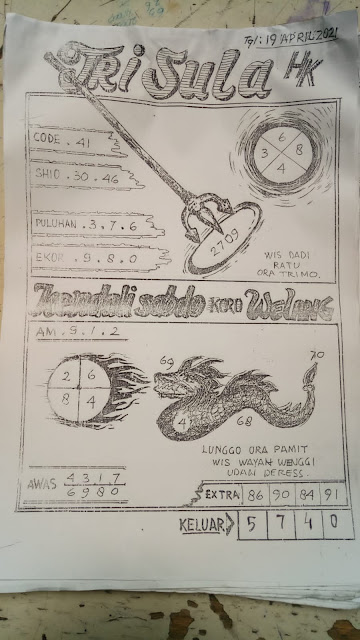 Tgl: 19 APRIL 2021
Tri Sula HK
CODE . 41
SHIO . 30 . 46
PULUHAN . 3 . 7 . 6
EKOR . 9 . 8 . 0
6
3 8
4
2709
WIS DADI
RATU
ORA TRIMO.
sabdo KORO WELANG
AM . 9 . 1 . 2
2 6
8 4
69
70
4
68
LUNGGO ORA PAMIT
WIS WAYAH WENGGI
UDAN DERESS.
AWAS 4 3 1 7
6 9 8 0
EXTRA 86 90 84 91
KELUAR 5 7 4 0